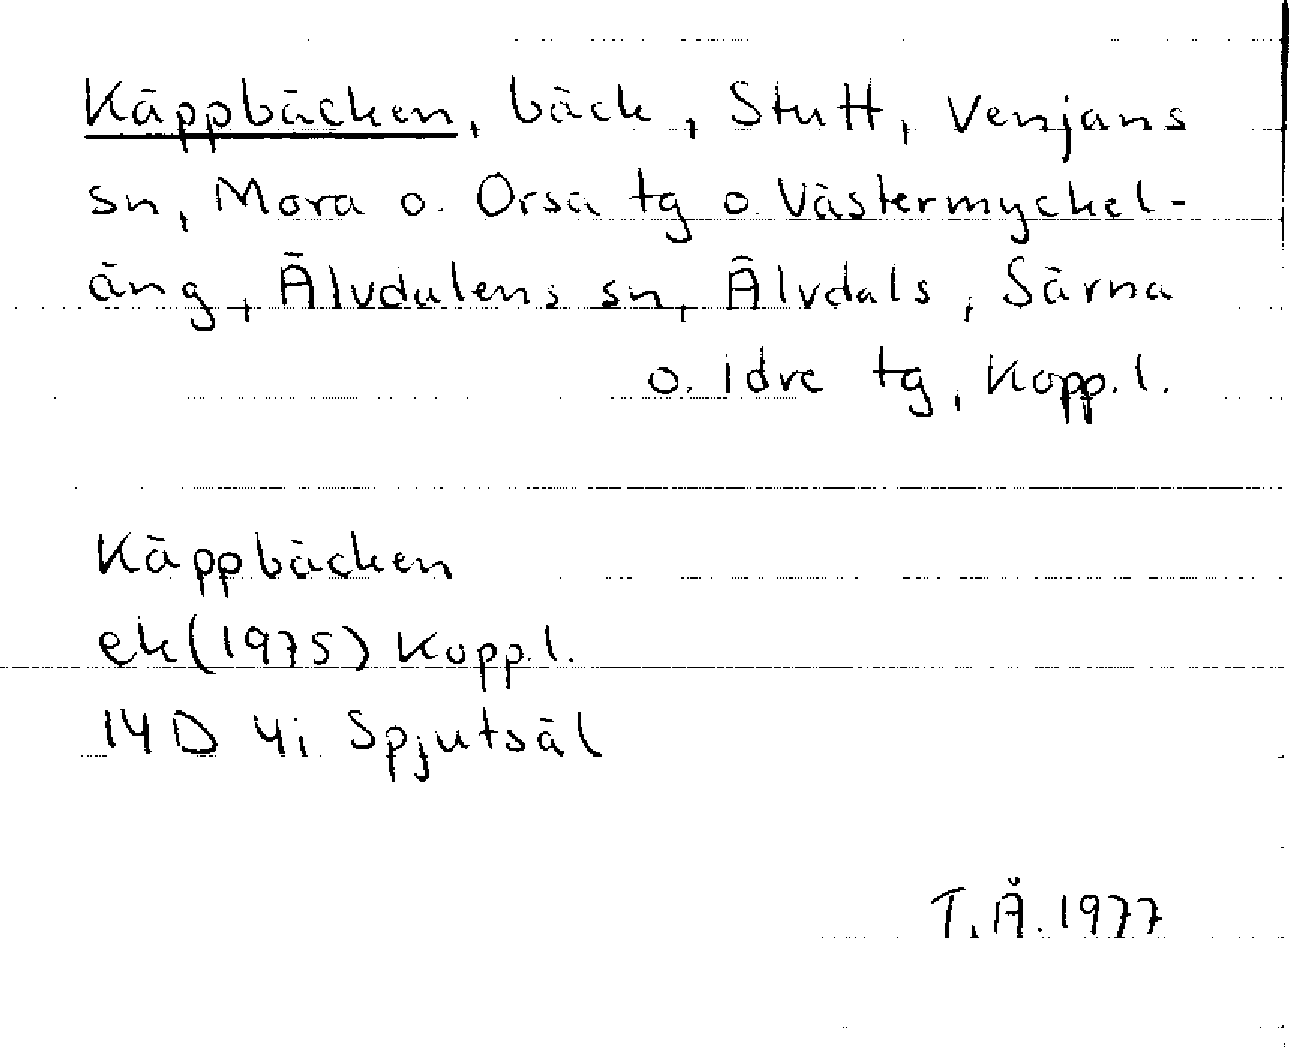 Käppbäcken, bäck, Stutt, Venjans
sn, Mora o. Orsa tg o. Västermyckel-
äng, Älvdalens sn, Älvdals, Särna
o. Idre tg, Kopp.l.
Käppbäcken
ek(1975) Kopp.l.
14D 4i Spjutsäl
T.Å.1977